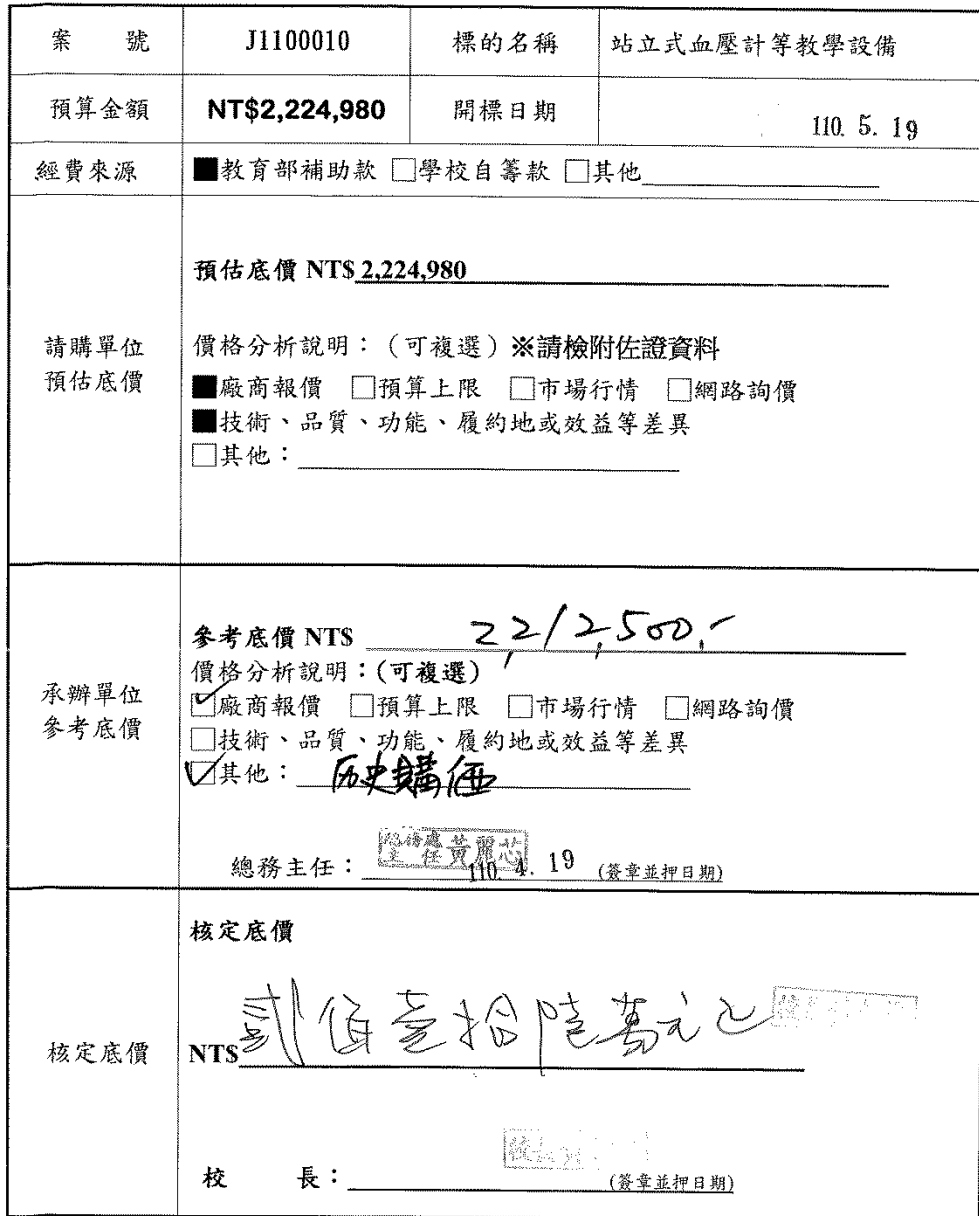 案 號 J1100010 標的名稱 站立式血壓計等教學設備
預算金額 NT$2,224,980 開標日期 110. 5. 19
經費來源 ■教育部補助款 □學校自籌款 □其他
預估底價 NT$ 2,224,980
請購單位
預估底價
價格分析說明：（可複選）※請檢附佐證資料
■廠商報價 □預算上限 □市場行情 □網路詢價
■技術、品質、功能、履約地或效益等差異
□其他：
參考底價 NT$ 2,212,500.-
價格分析說明：(可複選)
承辦單位
參考底價
☑廠商報價 □預算上限 □市場行情 □網路詢價
□技術、品質、功能、履約地或效益等差異
☑其他： 历史購価
總務處
主 任 黃麗芯
總務主任： 110. 4. 19 (簽章並押日期)
核定底價
核定底價 NT$ 貳佰壹拾陸萬元正
校長
校長
校 長： (簽章並押日期)